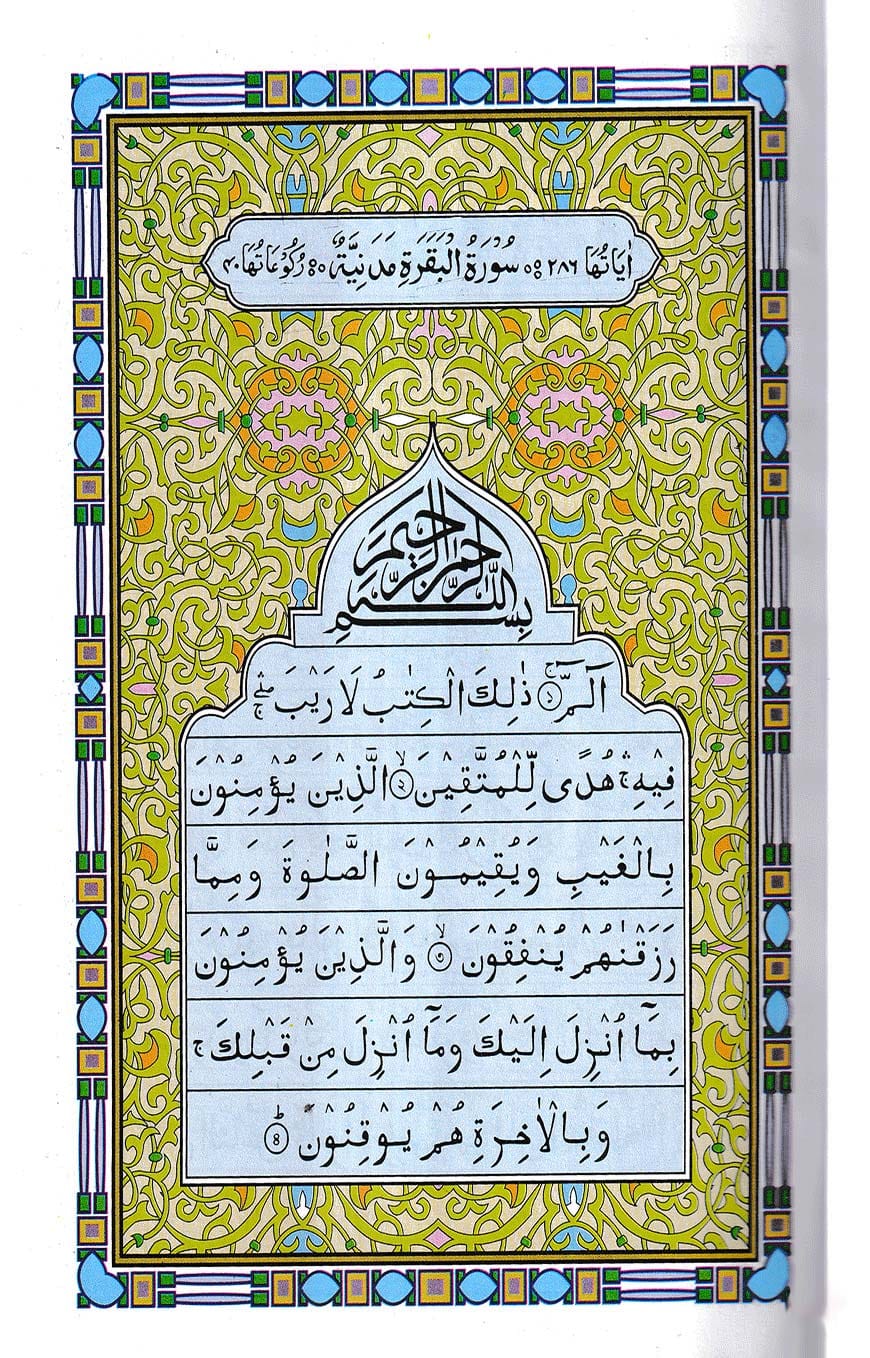 اٰیَاتُهَا ٢٨٦ سُوْرَةُ الْبَقَرَةِ مَدَنِیَّةٌ رُکُوْعَاتُهَا ۴۰
بِسْمِ اللّٰهِ الرَّحْمٰنِ الرَّحِیْمِ
الٓمّٓ ۚ﴿۱﴾ ذٰلِكَ الْكِتٰبُ لَا رَیْبَ ۛۖۚ
فِیْهِ ۛۚ هُدًی لِّلْمُتَّقِیْنَ ۙ﴿۲﴾ الَّذِیْنَ یُؤْمِنُوْنَ
بِالْغَیْبِ وَیُقِیْمُوْنَ الصَّلٰوةَ وَمِمَّا
رَزَقْنٰهُمْ یُنْفِقُوْنَ ۙ﴿۳﴾ وَالَّذِیْنَ یُؤْمِنُوْنَ
بِمَاۤ اُنْزِلَ اِلَیْكَ وَمَاۤ اُنْزِلَ مِنْ قَبْلِكَ ۚ
وَبِالْاٰخِرَةِ هُمْ یُوْقِنُوْنَ ؕ﴿۴﴾